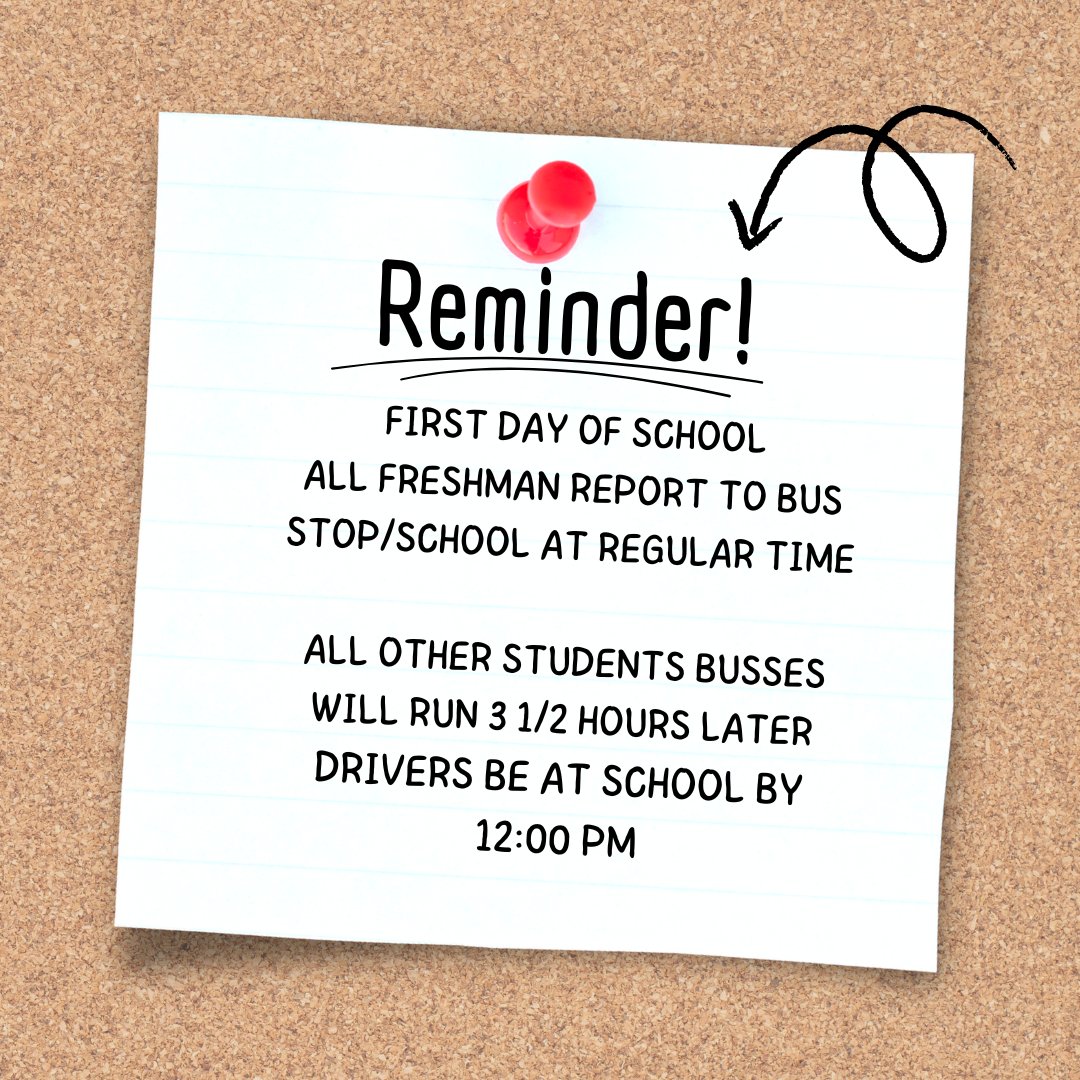 Reminder!
FIRST DAY OF SCHOOL
ALL FRESHMAN REPORT TO BUS
STOP/SCHOOL AT REGULAR TIME
ALL OTHER STUDENTS BUSSES
WILL RUN 3 1/2 HOURS LATER
DRIVERS BE AT SCHOOL BY
12:00 PM